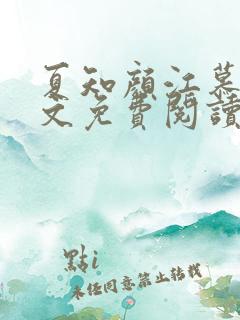 夏知顏江慕
文免費閱讀
點i
未经同意禁止转载